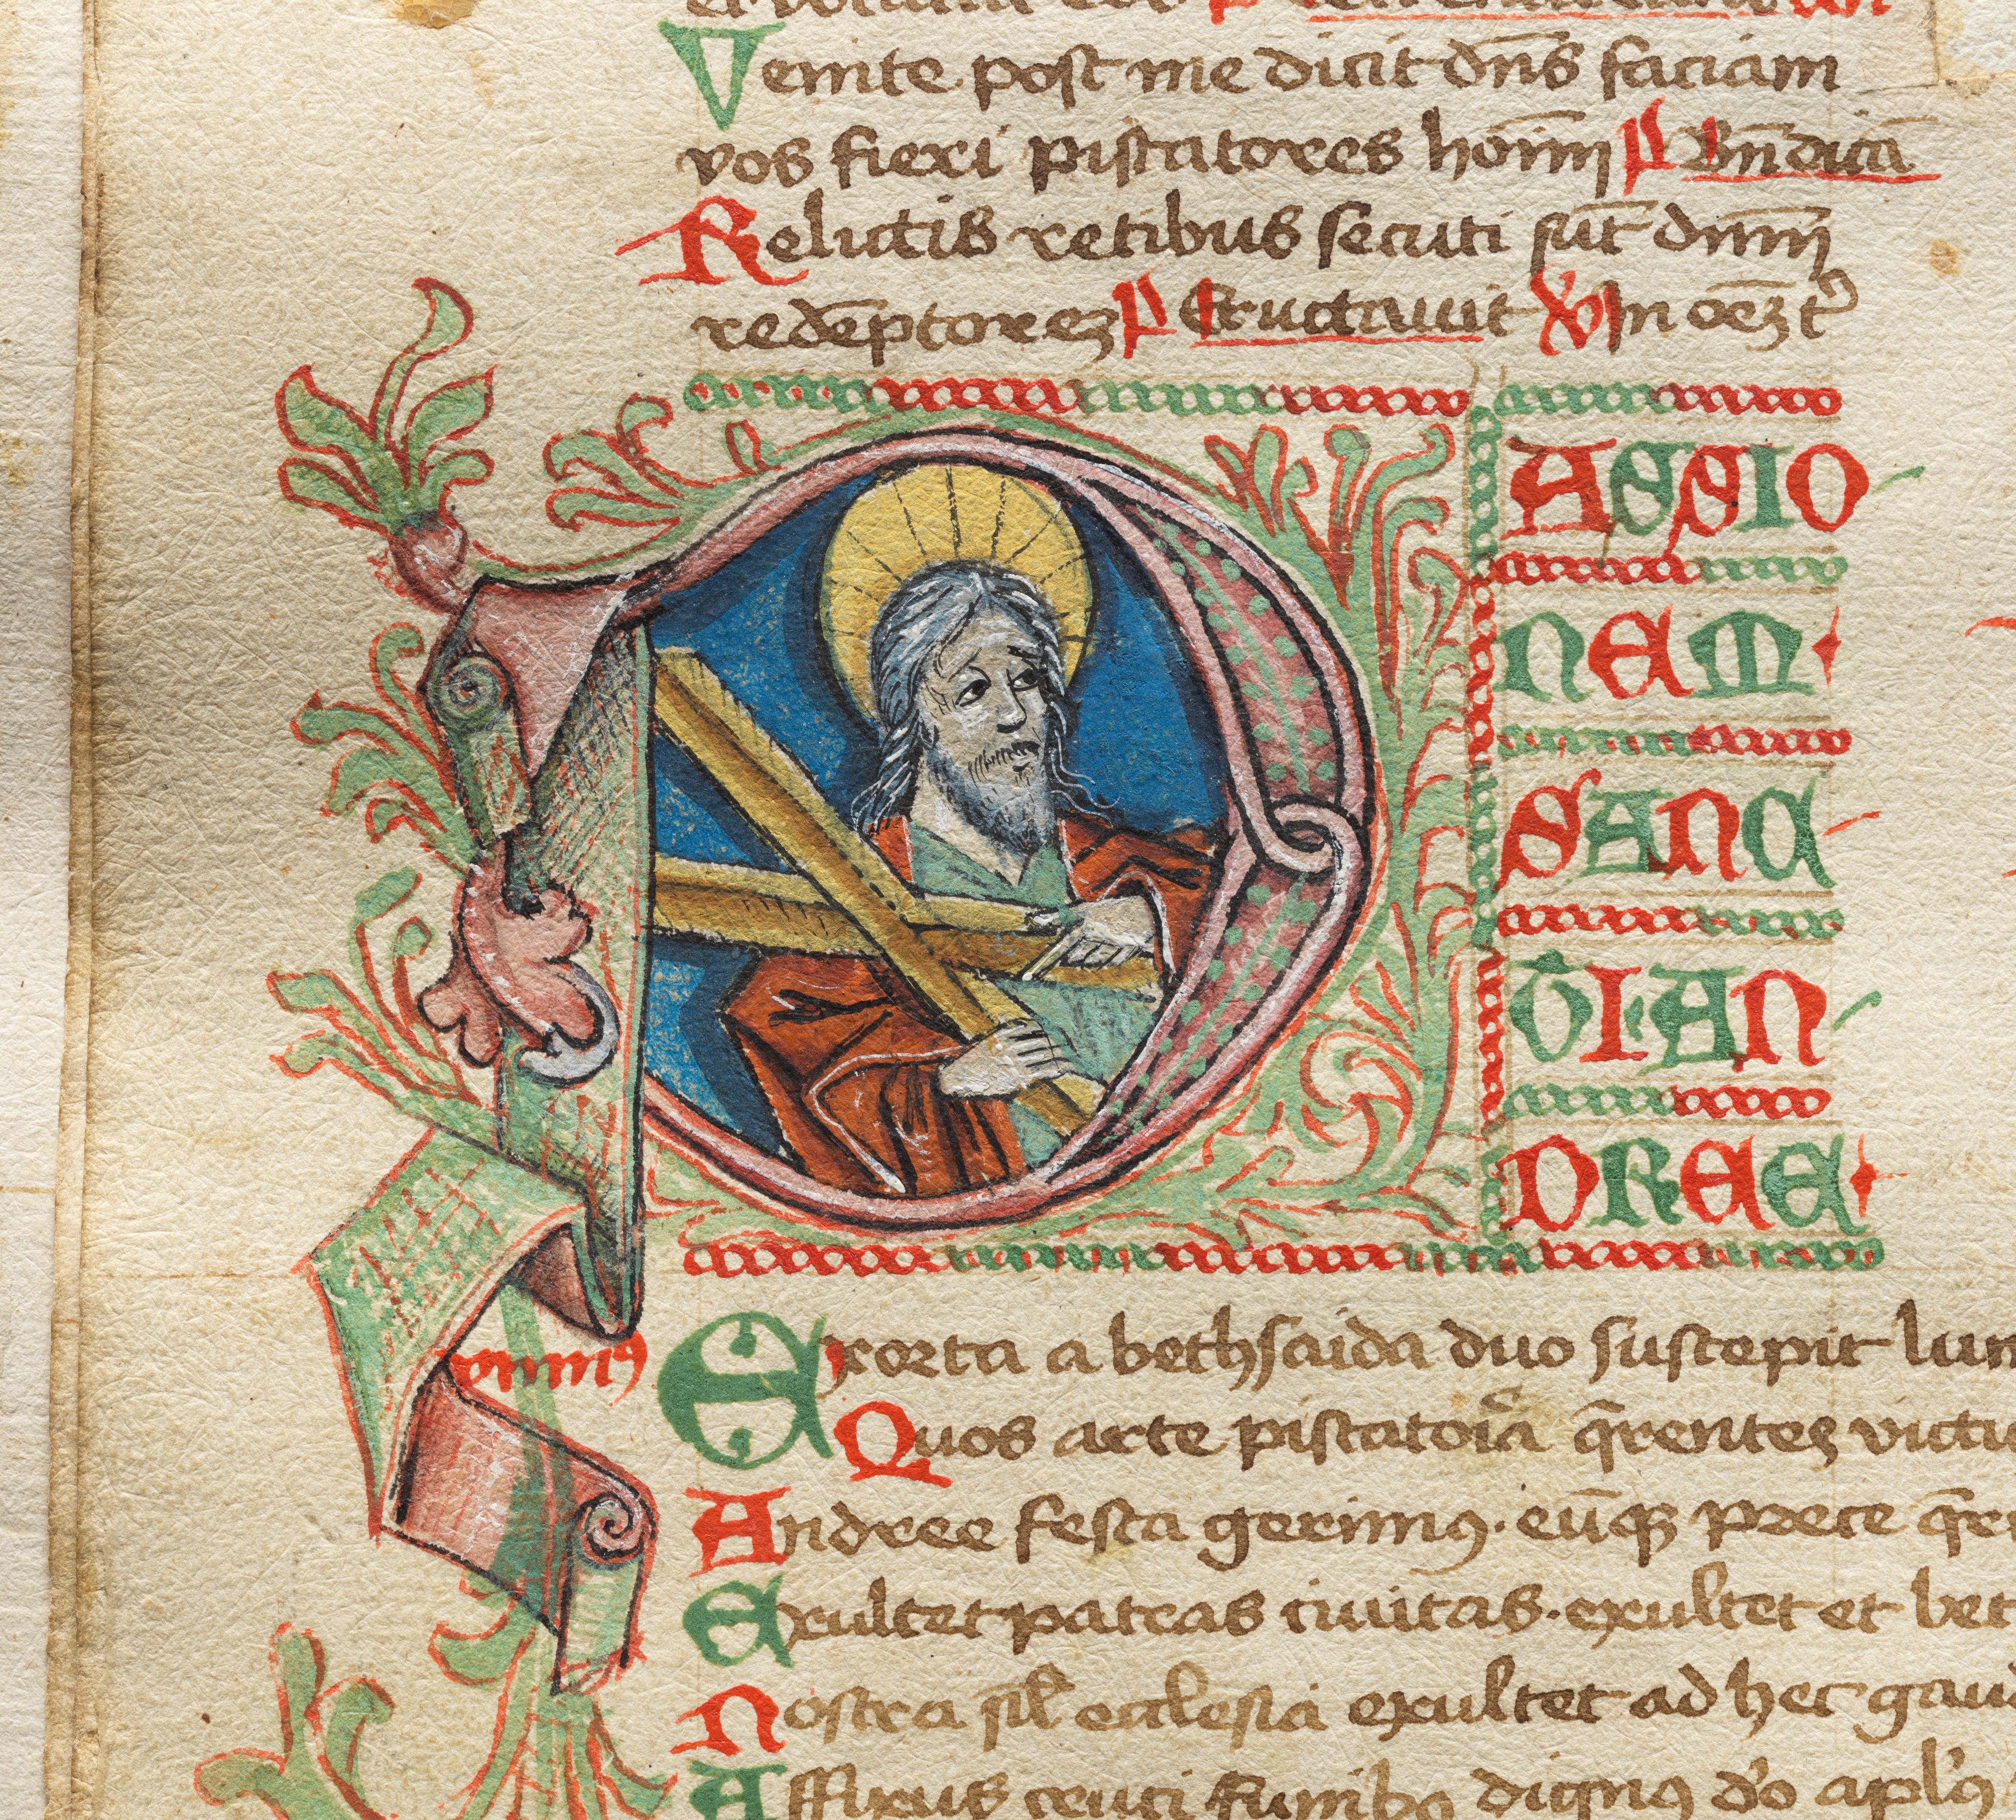 Venite post me dicit dn̄s faciam
vos fieri piscatores hoīm P̄ Bn̄dicā
Relictis retibus secuti sūt dn̄m
redēptorez P̄ Eructauit ℣ In oēz t
PASSIO
NEM
SANC
TI AN
DREE
ymnꝰ Exorta a bethsaida duo suscepit lu
Quos arte piscatoia q̄rentes victu
Andree festa gerimꝰ · eūqꝫ prece q̄r
Exultet patras ciuitas · exultet et bet
Nostra sil̄ ecclesia exultet ad hec gau
Affixus cruci funibꝰ dignꝰ dō aplꝰ